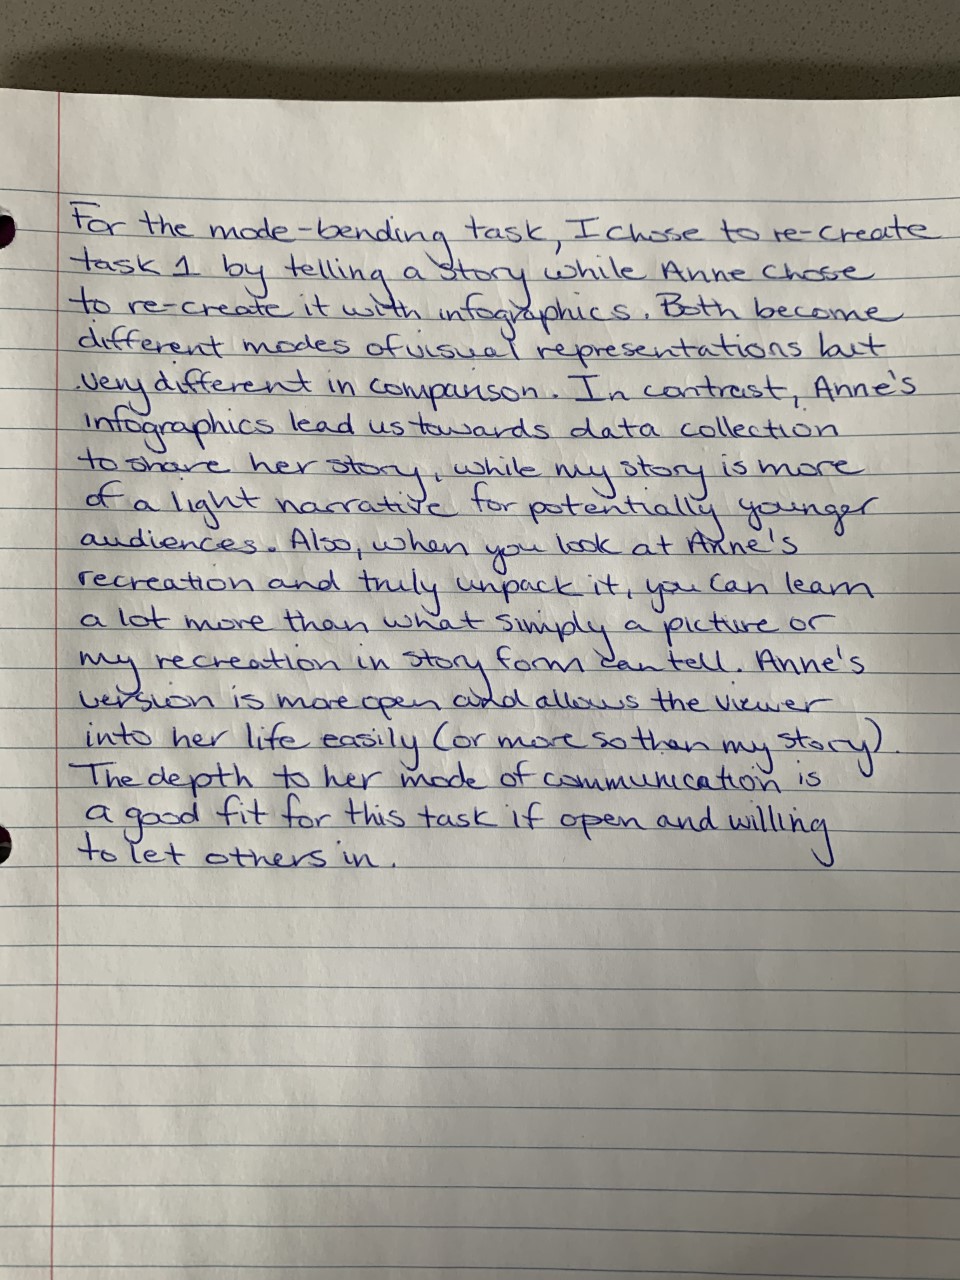 For the mode-bending task, I chose to re-create
task 1 by telling a story while Anne chose
to re-create it with infographics. Both become
different modes of visual representations but
very different in comparison. In contrast, Anne's
infographics lead us towards data collection
to share her story, while my story is more
of a light narrative for potentially younger
audiences. Also, when you look at Anne's
recreation and truly unpack it, you can learn
a lot more than what simply a picture or
my recreation in story form can tell. Anne's
version is more open and allows the viewer
into her life easily (or more so than my story).
The depth to her mode of communication is
a good fit for this task if open and willing
to let others in.